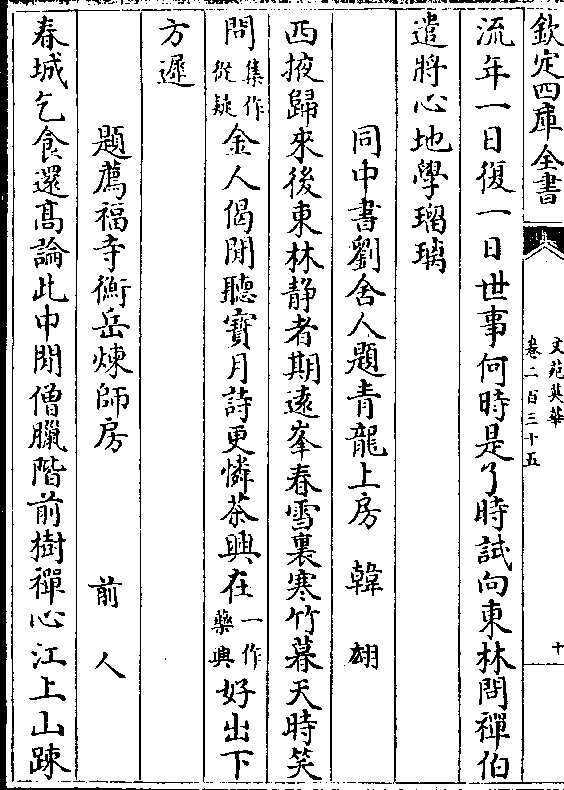 欽定四庫全書
文苑英華
卷二百三十五
十
流年一日復一日世事何時是了時試向東林問禪伯
遣將心地學瑠璃
同中書劉舍人題青龍上房 韓翃
西掖歸來後東林静者期遠峯春雪裏寒竹暮天時笑
問集作從疑金人偈閒聽寶月詩更憐茶興在一作藥興好出下
方遲
題薦福寺衡岳煉師房 前人
春城乞食還髙論此中閒僧臘階前樹禪心江上山踈